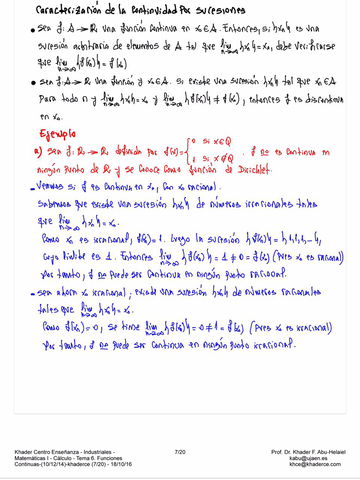 Caracterización de la continuidad por sucesiones
• Sea f: A → R una función continua en x₀ ∈ A. Entonces, si {xₙ} es una
sucesión arbitraria de elementos de A tal que lim {xₙ} = x₀, debe verificarse
n→∞
que lim {f(xₙ)} = f(x₀)
n→∞
• Sea f: A → R una función y x₀ ∈ A. Si existe una sucesión {xₙ} tal que xₙ ∈ A
para todo n y lim {xₙ} = x₀ y lim {f(xₙ)} ≠ f(x₀), entonces f es discontinua
n→∞ n→∞
en x₀.
Ejemplo
a) Sea f: R → R definida por f(x) = { 0 si x ∈ Q
1 si x ∉ Q . f no es continua en
ningún punto de R y se conoce como función de Dirichlet.
- Veamos si f es continua en x₀, con x₀ racional.
Sabemos que existe una sucesión {xₙ} de números irracionales tales
que lim {xₙ} = x₀.
n→∞
Como xₙ es irracional, f(xₙ) = 1. Luego la sucesión {f(xₙ)} = {1, 1, 1, ...},
cuyo límite es 1. Entonces lim {f(xₙ)} = 1 ≠ 0 = f(x₀) (pues x₀ es racional)
n→∞
Por tanto, f no puede ser continua en ningún punto racional.
- Sea ahora x₀ irracional; existe una sucesión {xₙ} de números racionales
tales que lim {xₙ} = x₀.
n→∞
Como f(xₙ) = 0, se tiene lim {f(xₙ)} = 0 ≠ 1 = f(x₀) (pues x₀ es irracional)
n→∞
Por tanto, f no puede ser continua en ningún punto irracional.
Khader Centro Enseñanza - Industriales -
Matemáticas I - Cálculo - Tema 6. Funciones
Continuas-(10/12/14)-khaderce (7/20) - 18/10/16
7/20
Prof. Dr. Khader F. Abu-Helaiel
kabu@ujaen.es
khce@khaderce.com